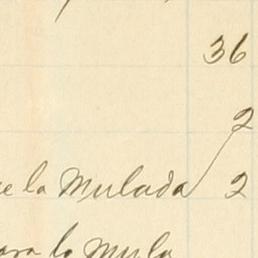 36
2
de la Mulada 2
para la Mula